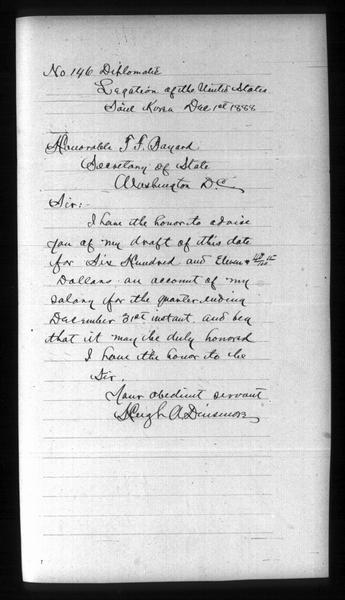 No. 146 Diplomatic
Legation of the United States
Söul Korea Dec 1st 1888
Honorable T. F. Bayard
Secretary of State
Washington D.C.
Sir:-
I have the honor to advise
you of my draft of this date
for Six Hundred and Eleven &
Dollars on account of my
salary for the quarter ending
December 31st instant, and beg
that it may be duly honored
I have the honor to be
Sir,
Your obedient servant
Hugh A Dinsmore